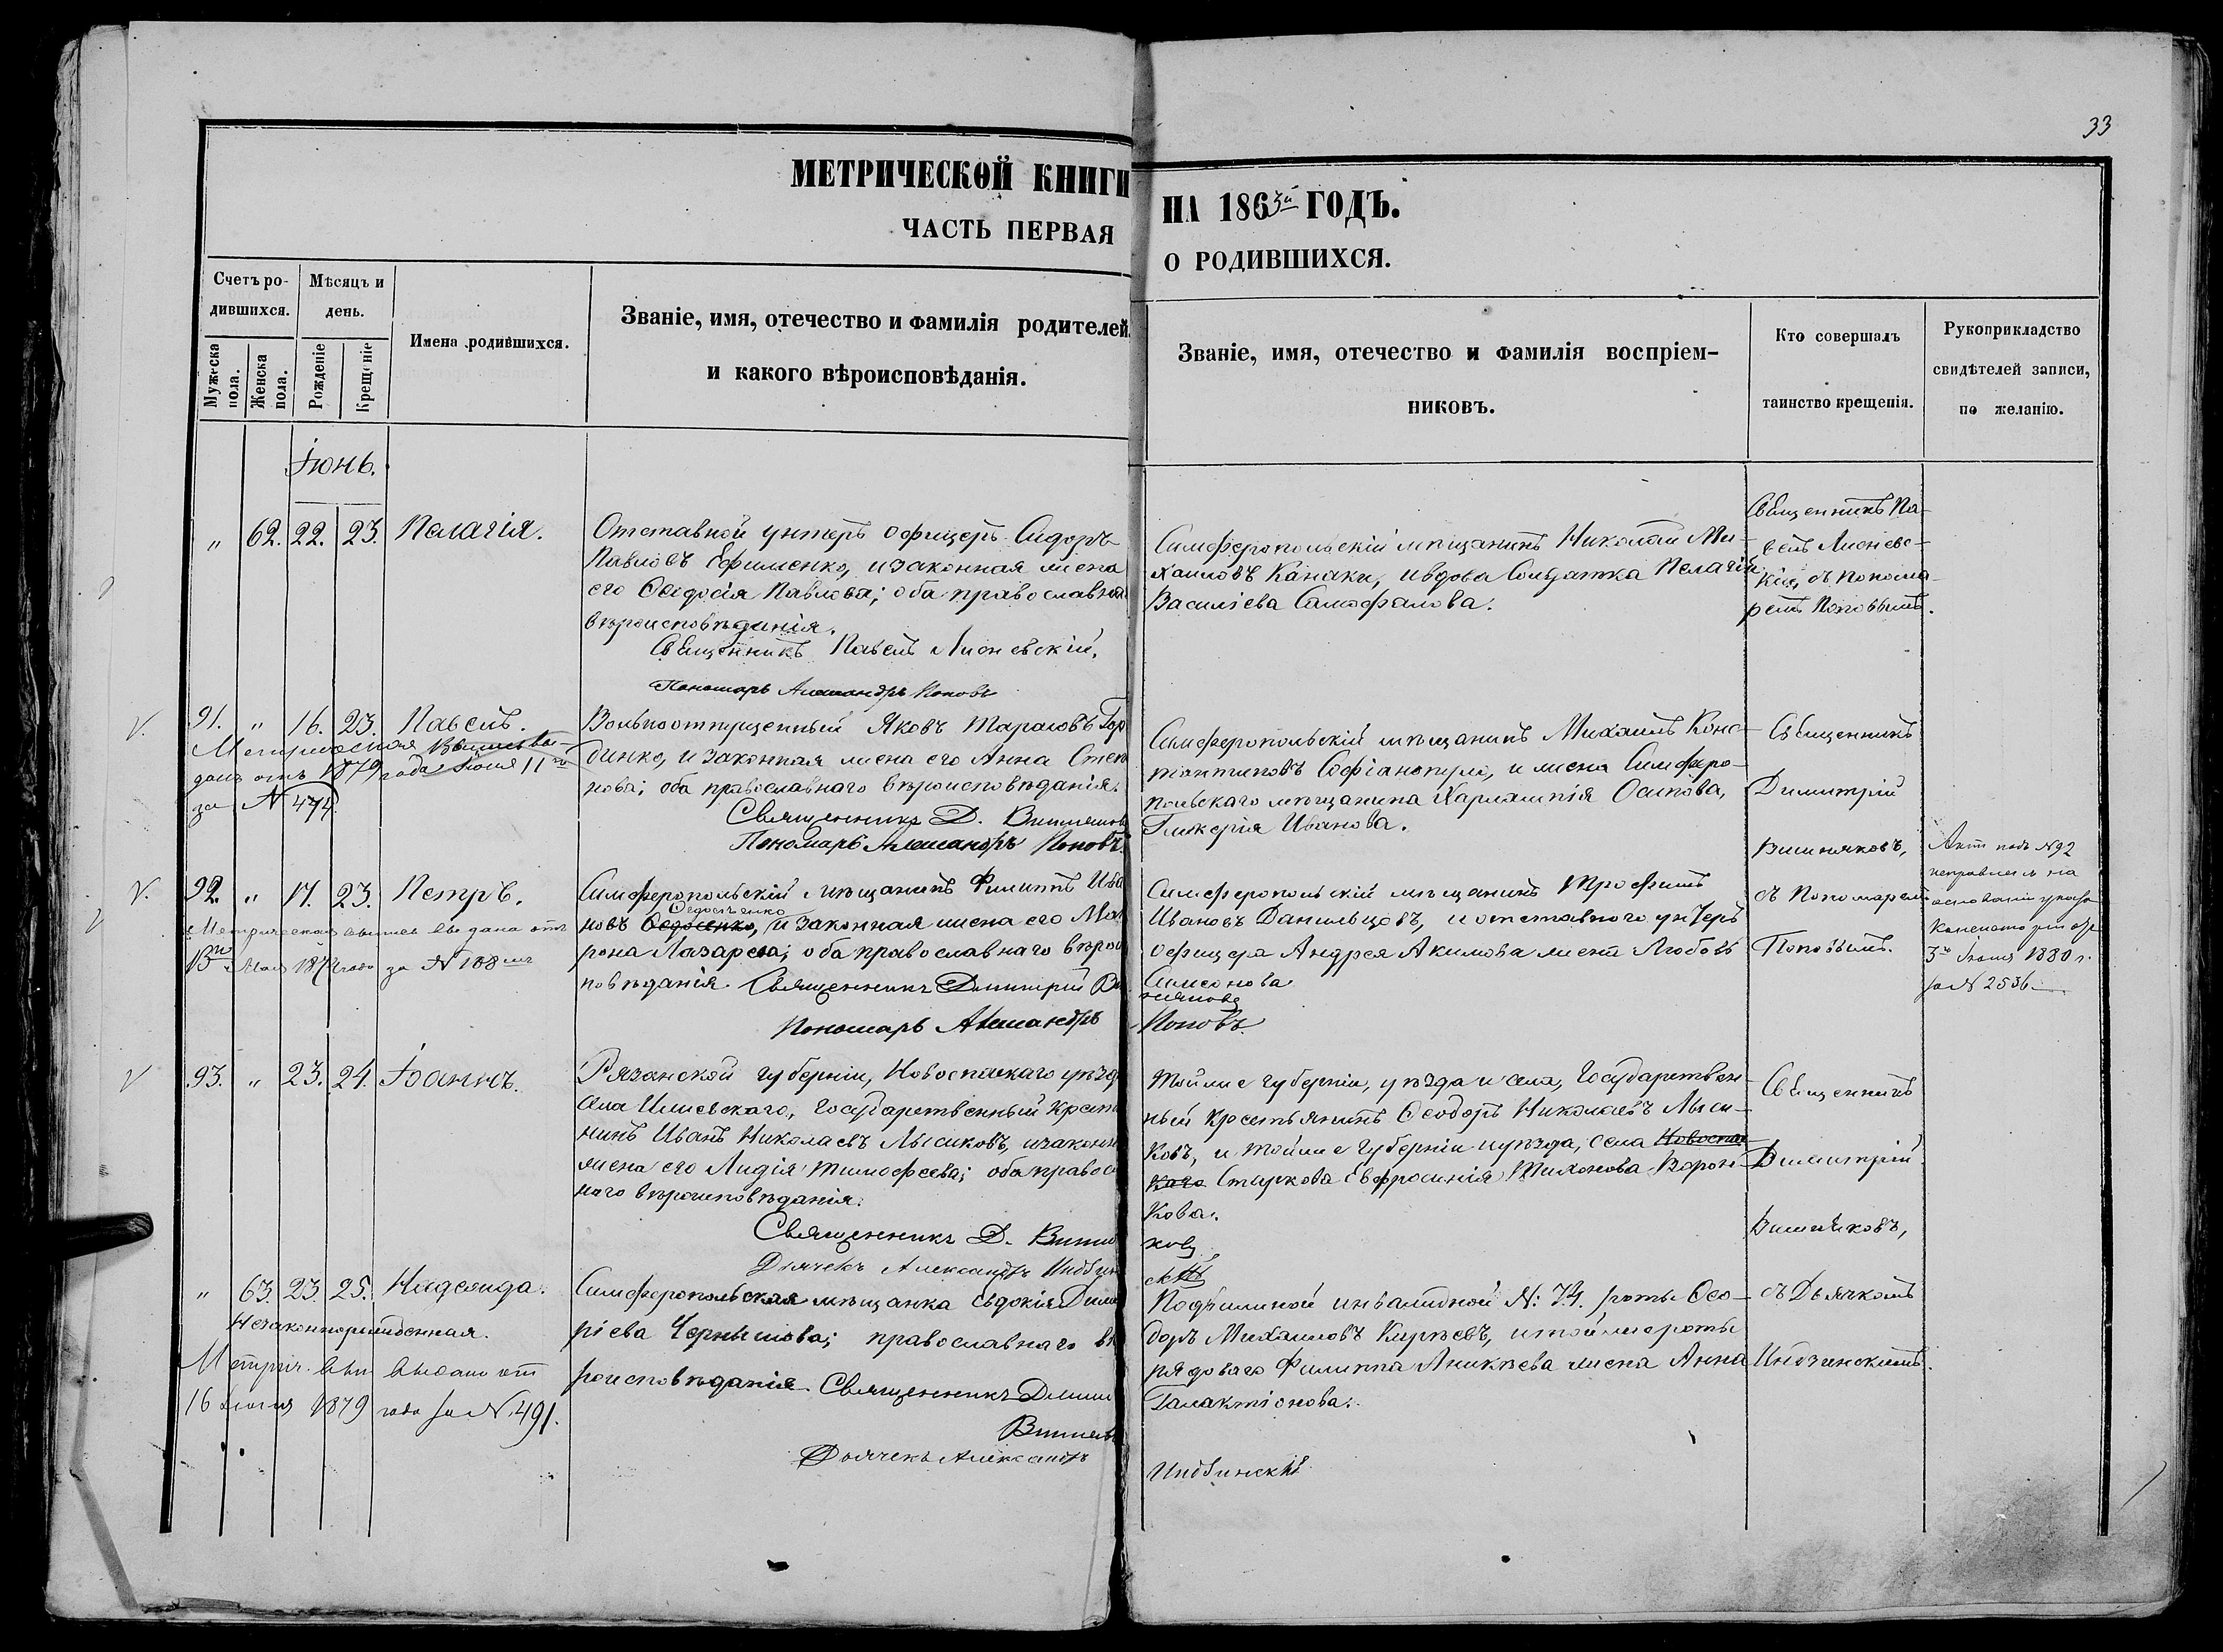 33
МЕТРИЧЕСКОЙ КНИГИ
НА 1863й ГОДЪ.
ЧАСТЬ ПЕРВАЯ
О РОДИВШИХСЯ.
Счетъ ро-
дившихся.
Мужеска
пола.
Женска
пола.
Мѣсяцъ и
день.
Рожденіе
Крещеніе
Имена родившихся.
Званіе, имя, отечество и фамилія родителей
и какого вѣроисповѣданія.
Званіе, имя, отечество и фамилія воспріем-
никовъ.
Кто совершалъ
таинство крещенія.
Рукоприкладство
свидѣтелей записи,
по желанію.
Іюнь.
" 62. 22. 23. Пелагія.
Отставной унтеръ офицеръ Сидоръ
Павловъ Ефименко, и законная жена
его Ѳеодосія Павлова; оба православна
вѣроисповѣданія.
Священникъ Павелъ
Пономарь Александръ Поповъ
Симферопольскій мѣщанинъ Николай Ми-
хаиловъ Канаки, и вдова Солдатка Пелагія
Василіева Самофалова.
Священникъ Па-
велъ
кій, съ понома-
ремъ Поповымъ.
91. " 16. 23. Павелъ.
Метрическая
данъ отъ 1879 года Іюня 11го
за N 474.
Вольноотпущенный Яковъ Тарасовъ Гор
динко, и законная жена его Анна Степ
нова; оба православнаго вѣроисповѣданія.
Священникъ Д. Вишняковъ
Пономарь Александръ Поповъ.
Симферопольскій мѣщанинъ Михаилъ Конс-
тантиновъ Софіанопуло, и жена Симферо-
польскаго мѣщанина Харлампія Осипова,
Гликерія Иванова.
Священникъ
Димитрій
Вишняковъ,
съ Пономаремъ
Поповымъ.
92. " 17. 23. Петръ.
Метрическая выпись выдана отъ
13го Мая года за N 188
Симферопольскій мѣщанинъ Филиппъ Ива
новъ Ѳедосенко, и законная жена его Мат
рона Лазарева; оба православнаго вѣроис
повѣданія. Священникъ Димитрій Ви
Пономарь Александръ
Симферопольскій мѣщанинъ Трофимъ
Ивановъ Данильцовъ, и отставного унтеръ
офицера Андрея Акимова жена Любовь
Самсонова
няковъ
Поповъ.
Актъ подъ N 92
исправленъ на
основаніи указа
Консисторіи отъ
3го Іюня 1880 г.
за N 2536
93. " 23. 24. Іоаннъ.
Рязанской губерніи, Новоспаскаго уѣзда
села, Государственный Крестья
нинъ Иванъ Николаевъ Лысиковъ, и законн
жена его Лидія Тимофеева; оба правосл
наго вѣроисповѣданія.
Священникъ Д. Вишня
Дьячекъ Александръ Индзин
Той же губерніи, уѣзда и села, Государствен-
ный Крестьянинъ Ѳеодоръ Николаевъ Лыси-
ковъ, и той же губерніи и уѣзда, села Новоспас-
каго Старкова Евфросинія Тихонова Ворон-
кова.
ковъ
скій
Священникъ
Димитрій
Вишняковъ,
съ Дьячкомъ
Индзинскимъ.
" 63. 23. 25. Надежда.
Незаконнорожденная.
Метрич. вып выдано отъ
16 Іюня 1879 года за N 491.
Симферопольская мѣщанка Евдокія Дими
ріева Чернышова; православнаго вѣ
роисповѣданія. Священникъ Дими
Вишняк
Дьячекъ Александръ
Подвижной инвалидной N: 74. роты Ѳео-
доръ Михаиловъ Кирѣевъ, и той же роты
рядоваго Филиппа Аникѣева жена Анна
Галактіонова.
Индзинскій